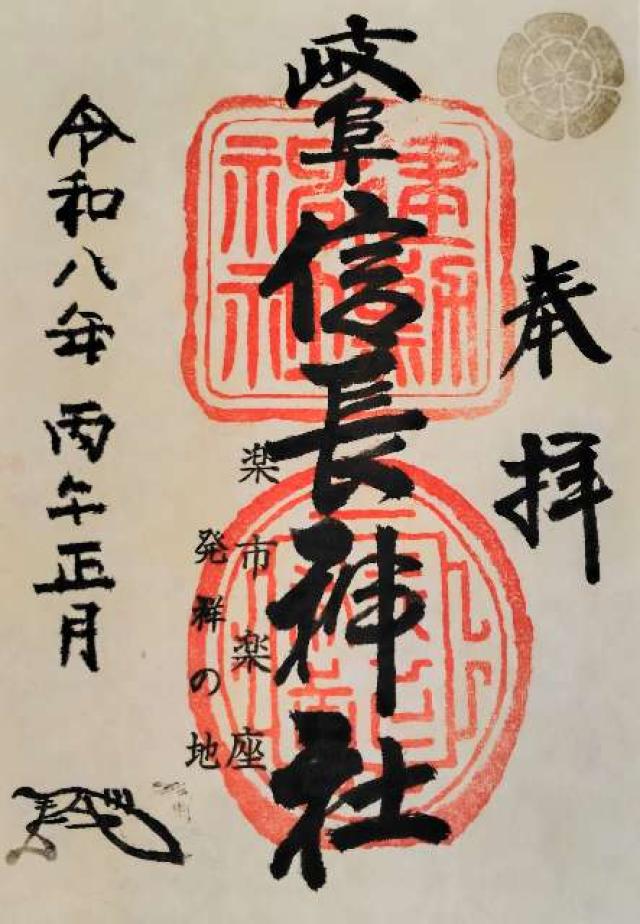 奉拝
岐阜信長神社
建勲神社
楽市楽座
発祥の地
令和八年 丙午正月